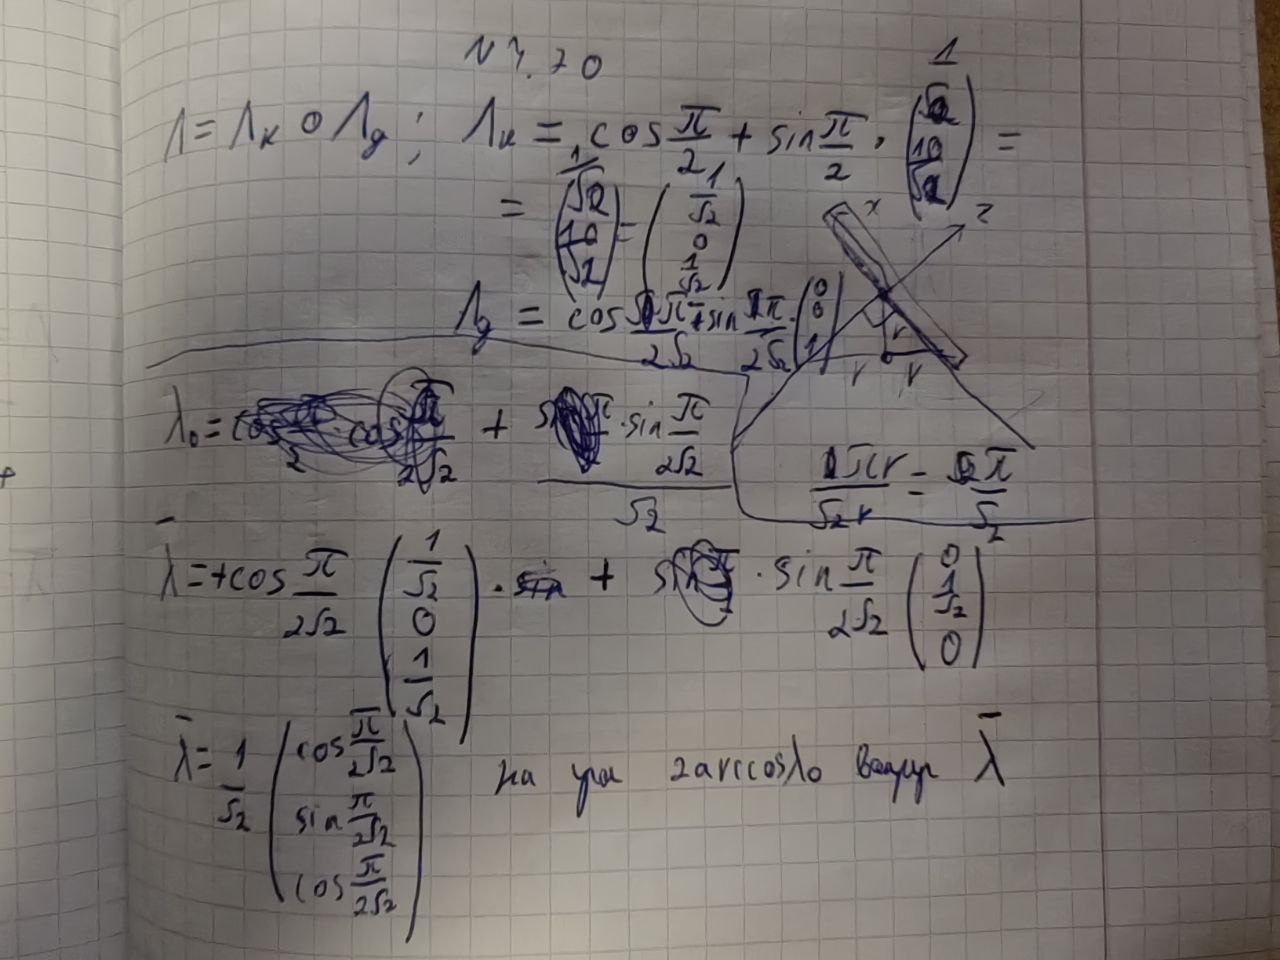 N 4.70
Λ = Λк ∘ Λg ; Λк = cos π/2 + sin π/2 · (1/√2 0 1/√2) =
= (1/√2 0 1/√2) = (1/√2 0 1/√2)
Λg = cos π/2√2 + sin π/2√2 · (0 0 1)
x
z
r
r r
λ₀ = + sin π/2√2 / √2
πr/√2r = π/√2
λ̄ = + cos π/2√2 (1/√2 0 1/√2) · + sin π/2√2 (0 1/√2 0)
λ̄ = 1/√2 (cos π/2√2 sin π/2√2 cos π/2√2) на угол 2arccosλ₀ вокруг λ̄